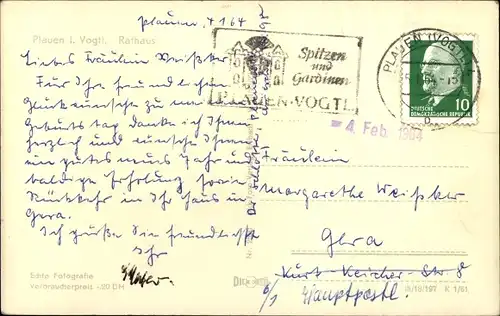 Plauen, 4 1 64
Plauen i. Vogtl. Rathaus
Liebes Fräulein Weißker
Für Ihre freundlichen
Glückwünsche zu meinem
Geburtstag danke ich Ihnen
herzlich und wünsche Ihnen
ein gutes neues Jahr und
baldige Erholung sowie
Rückkehr in Ihr Haus in
Gera.
Ich grüße Sie freundlichst
Ihr
Echte Fotografie
Verbraucherpreis -,20 DM
Spitzen
und
Gardinen
PLAUEN-VOGTL
PLAUEN (VOGTL)
DEUTSCHE
DEMOKRATISCHE REPUBLIK
10
- 4. Feb. 1964
Fräulein
Margarethe Weißker
Gera
Kurt Keicher Str 8
Hauptpostl.
K 1/61